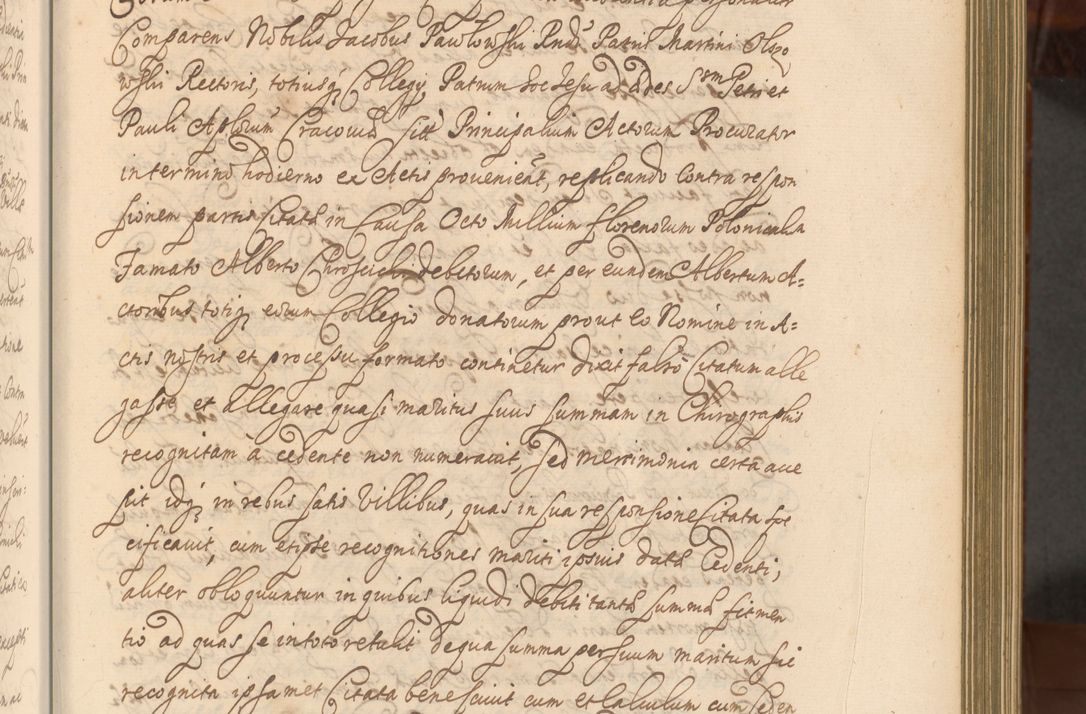 Comparens Nobilis Jacobus Pawlowski Rndi Patris Martini Olszo
wski Rectoris, totiusq Collegij Patrum Soc Jesu ad ædes Ssm Petri et
Pauli Aplorum Cracoviæ sitt Principalium Actorum Procurator
in termino hodierno ex Actis provenient, replicando contra respon
sionem partis Citatæ in Causa Octo Millium florenorum Polonicaliu
Famato Alberto Chroscich debitorum, et per eundem Albertum A=
ctoribus totiq eorum Collegio donatorum prout eo Nomine in A=
ctis nostris et processu formato continetur dixit falso Citatum alle
gasse et allegare quasi maritus suus summam in Chirographis
recognitam à cedente non numeravit, sed merximonia certa acce
pit idq in rebus satis villibus, quas in sua responsione Citata spe
cificavit, cum etipse recognitiones mariti ipsius datæ Cedenti,
aliter obloquuntur in quibus liquidi debiti tantæ summæ fit men
tio ad quas se in toto retulit de qua summa per suum maritum sic
recognita ipsamet Citata bene scivit cum et Calculum cum Ceden